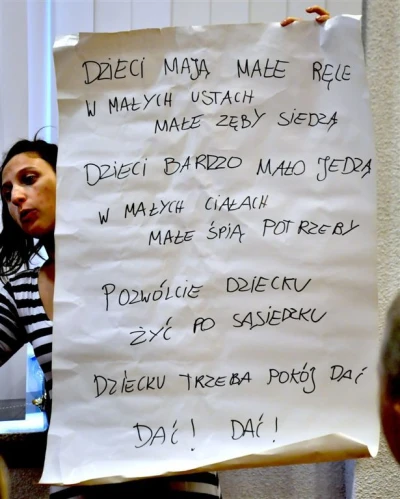 DZIECI MAJĄ MAŁE RĘLE
W MAŁYCH USTACH
MAŁE ZĘBY SIEDZĄ
DZIECI BARDZO MAŁO JEDZĄ
W MAŁYCH CIAŁACH
MAŁE ŚPIĄ POTRZEBY
POZWÓLCIE DZIECKU
ŻYĆ PO SĄSIEDZKU
DZIECKU TRZEBA POKÓJ DAĆ
DAĆ! DAĆ!